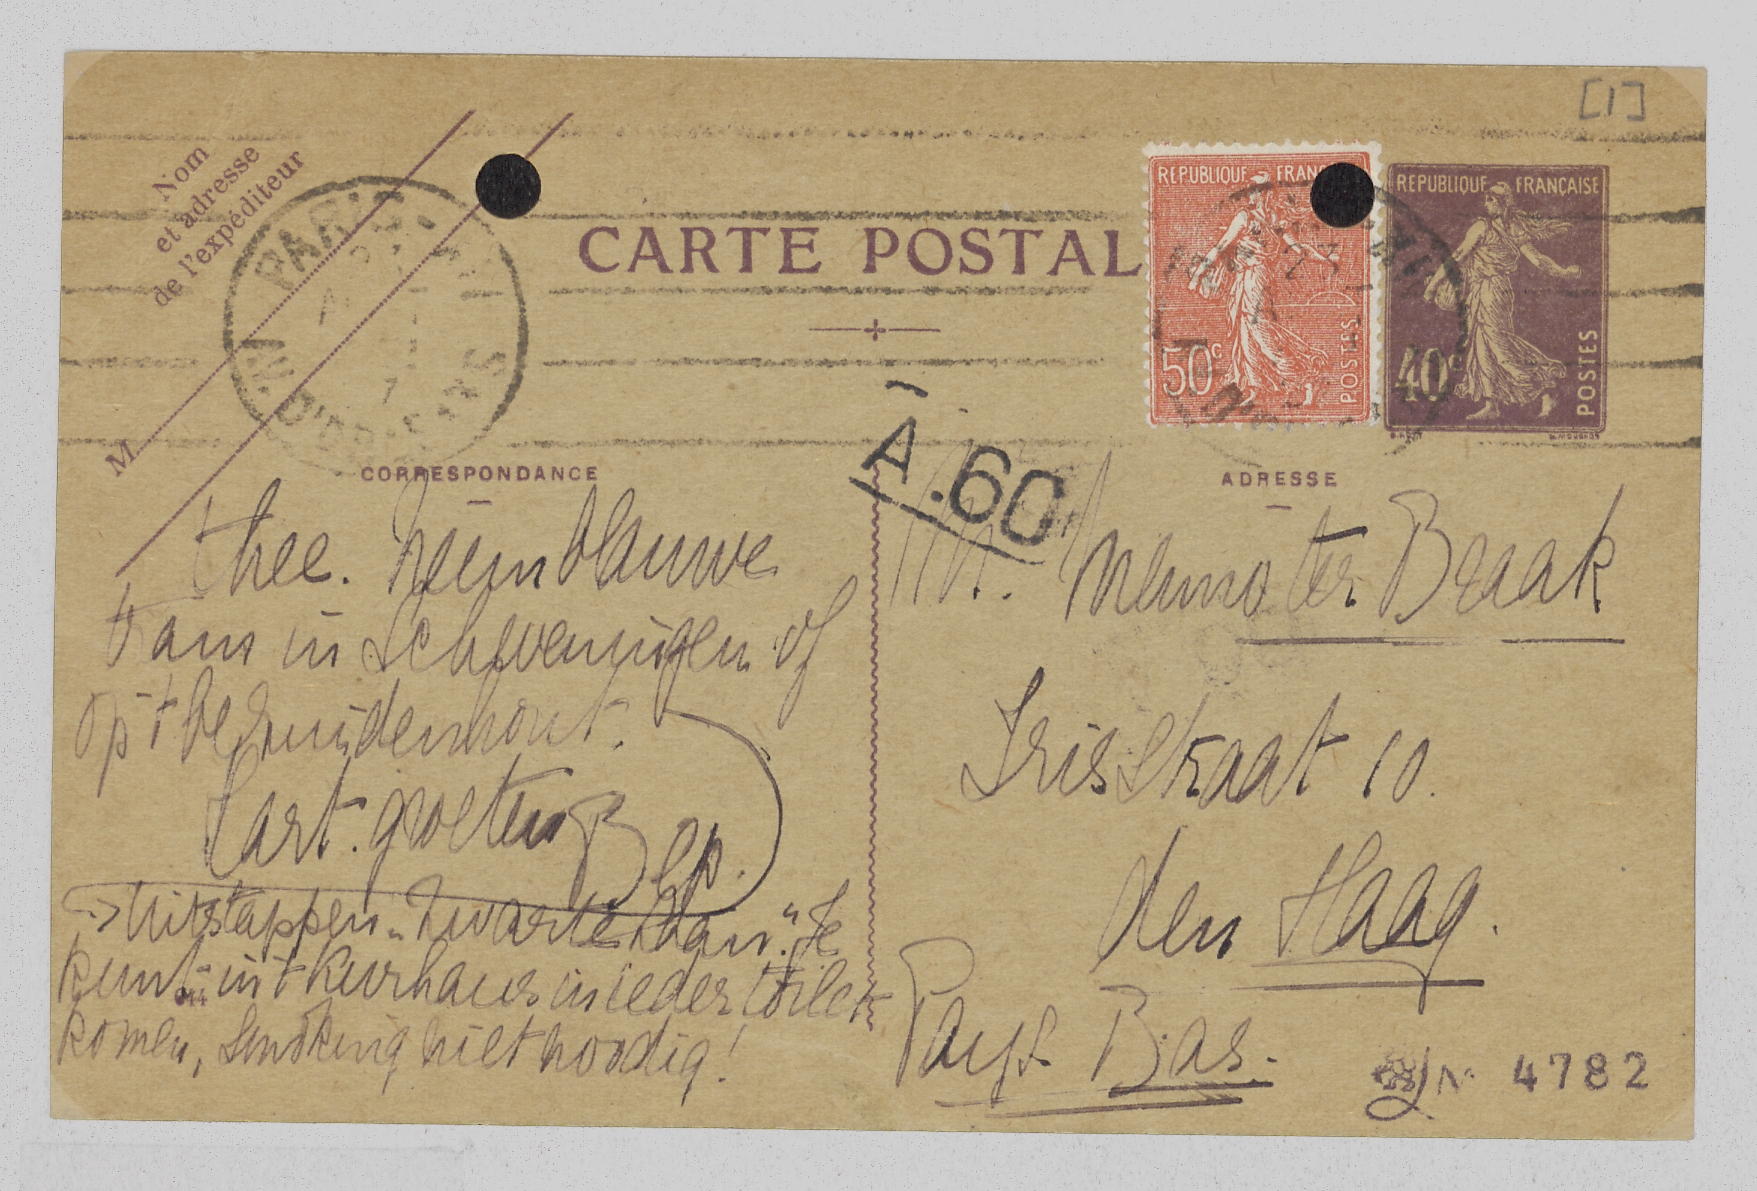 [1]
Nom
et adresse
de l'expéditeur
M
CARTE POSTALE
REPUBLIQUE FRANÇAISE
50c
POSTES
REPUBLIQUE FRANÇAISE
40c
POSTES
PARIS
CORRESPONDANCE
ADRESSE
A.60
thee. Neem blauwe
tram in Scheveningen of
op 't bezuidenhout.
Hart. groeten B
→ Uitstappen „Zwarte Pad". Je
kunt in 't Kurhaus in ieder toilet
komen, smoking niet noodig!
Mr. Menno ter Braak
Irisstraat 10.
den Haag.
Pays Bas.
No 4782